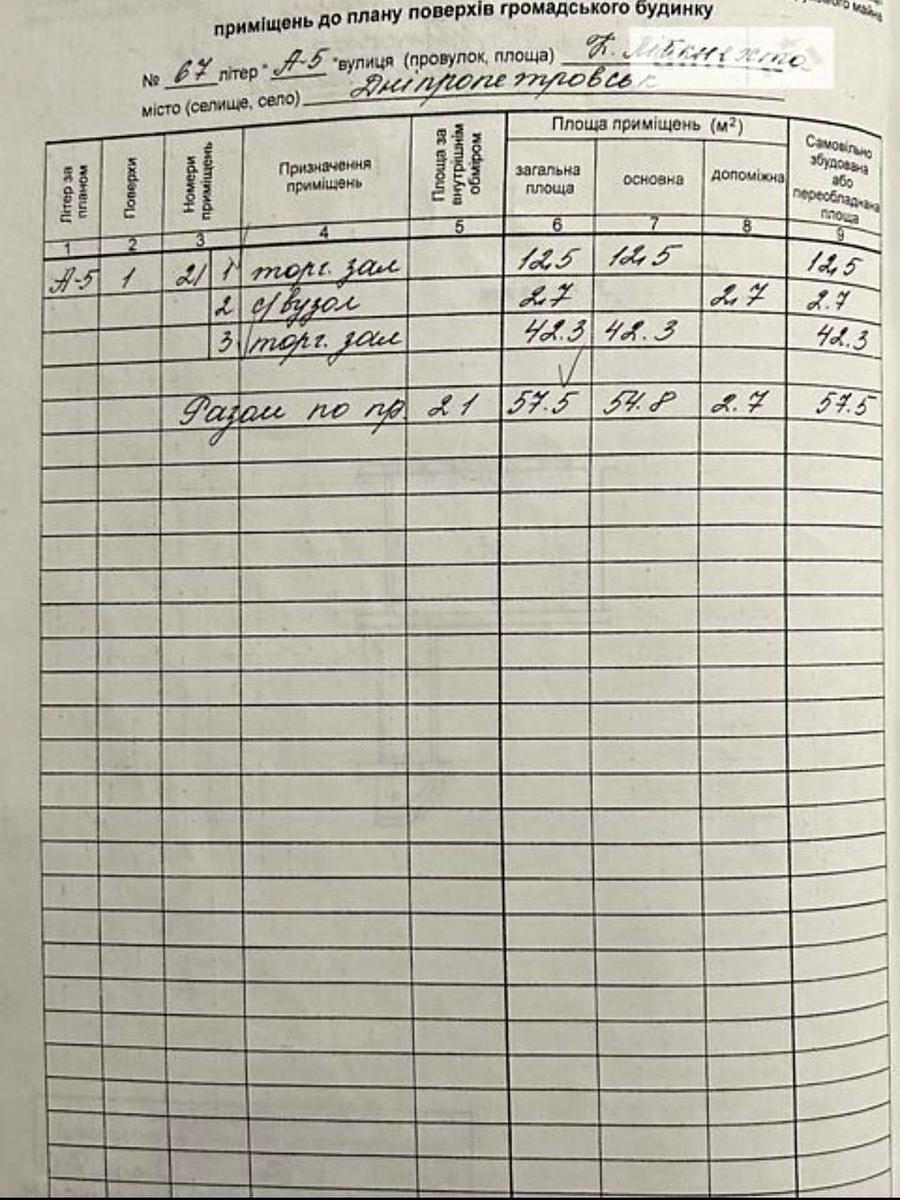 приміщень до плану поверхів громадського будинку
майна
№ 67 літер "А-5 "вулиця (провулок, площа) К. Лібкнехта
місто (селище, село) Дніпропетровськ
Літер за планом
Поверхи
Номери приміщень
Призначення приміщень
Площа за внутрішнім обміром
Площа приміщень (м²)
загальна площа
основна
допоміжна
Самовільно збудована або переобладнана площа
1 2 3 4 5 6 7 8 9
А-5 1 21 1 торг. зал 12,5 12,5 12,5
2 с/вузол 2,7 2,7 2.7
3 торг. зал 42.3 42.3 42.3
Разом по пр. 21 57.5 54.8 2.7 57.5